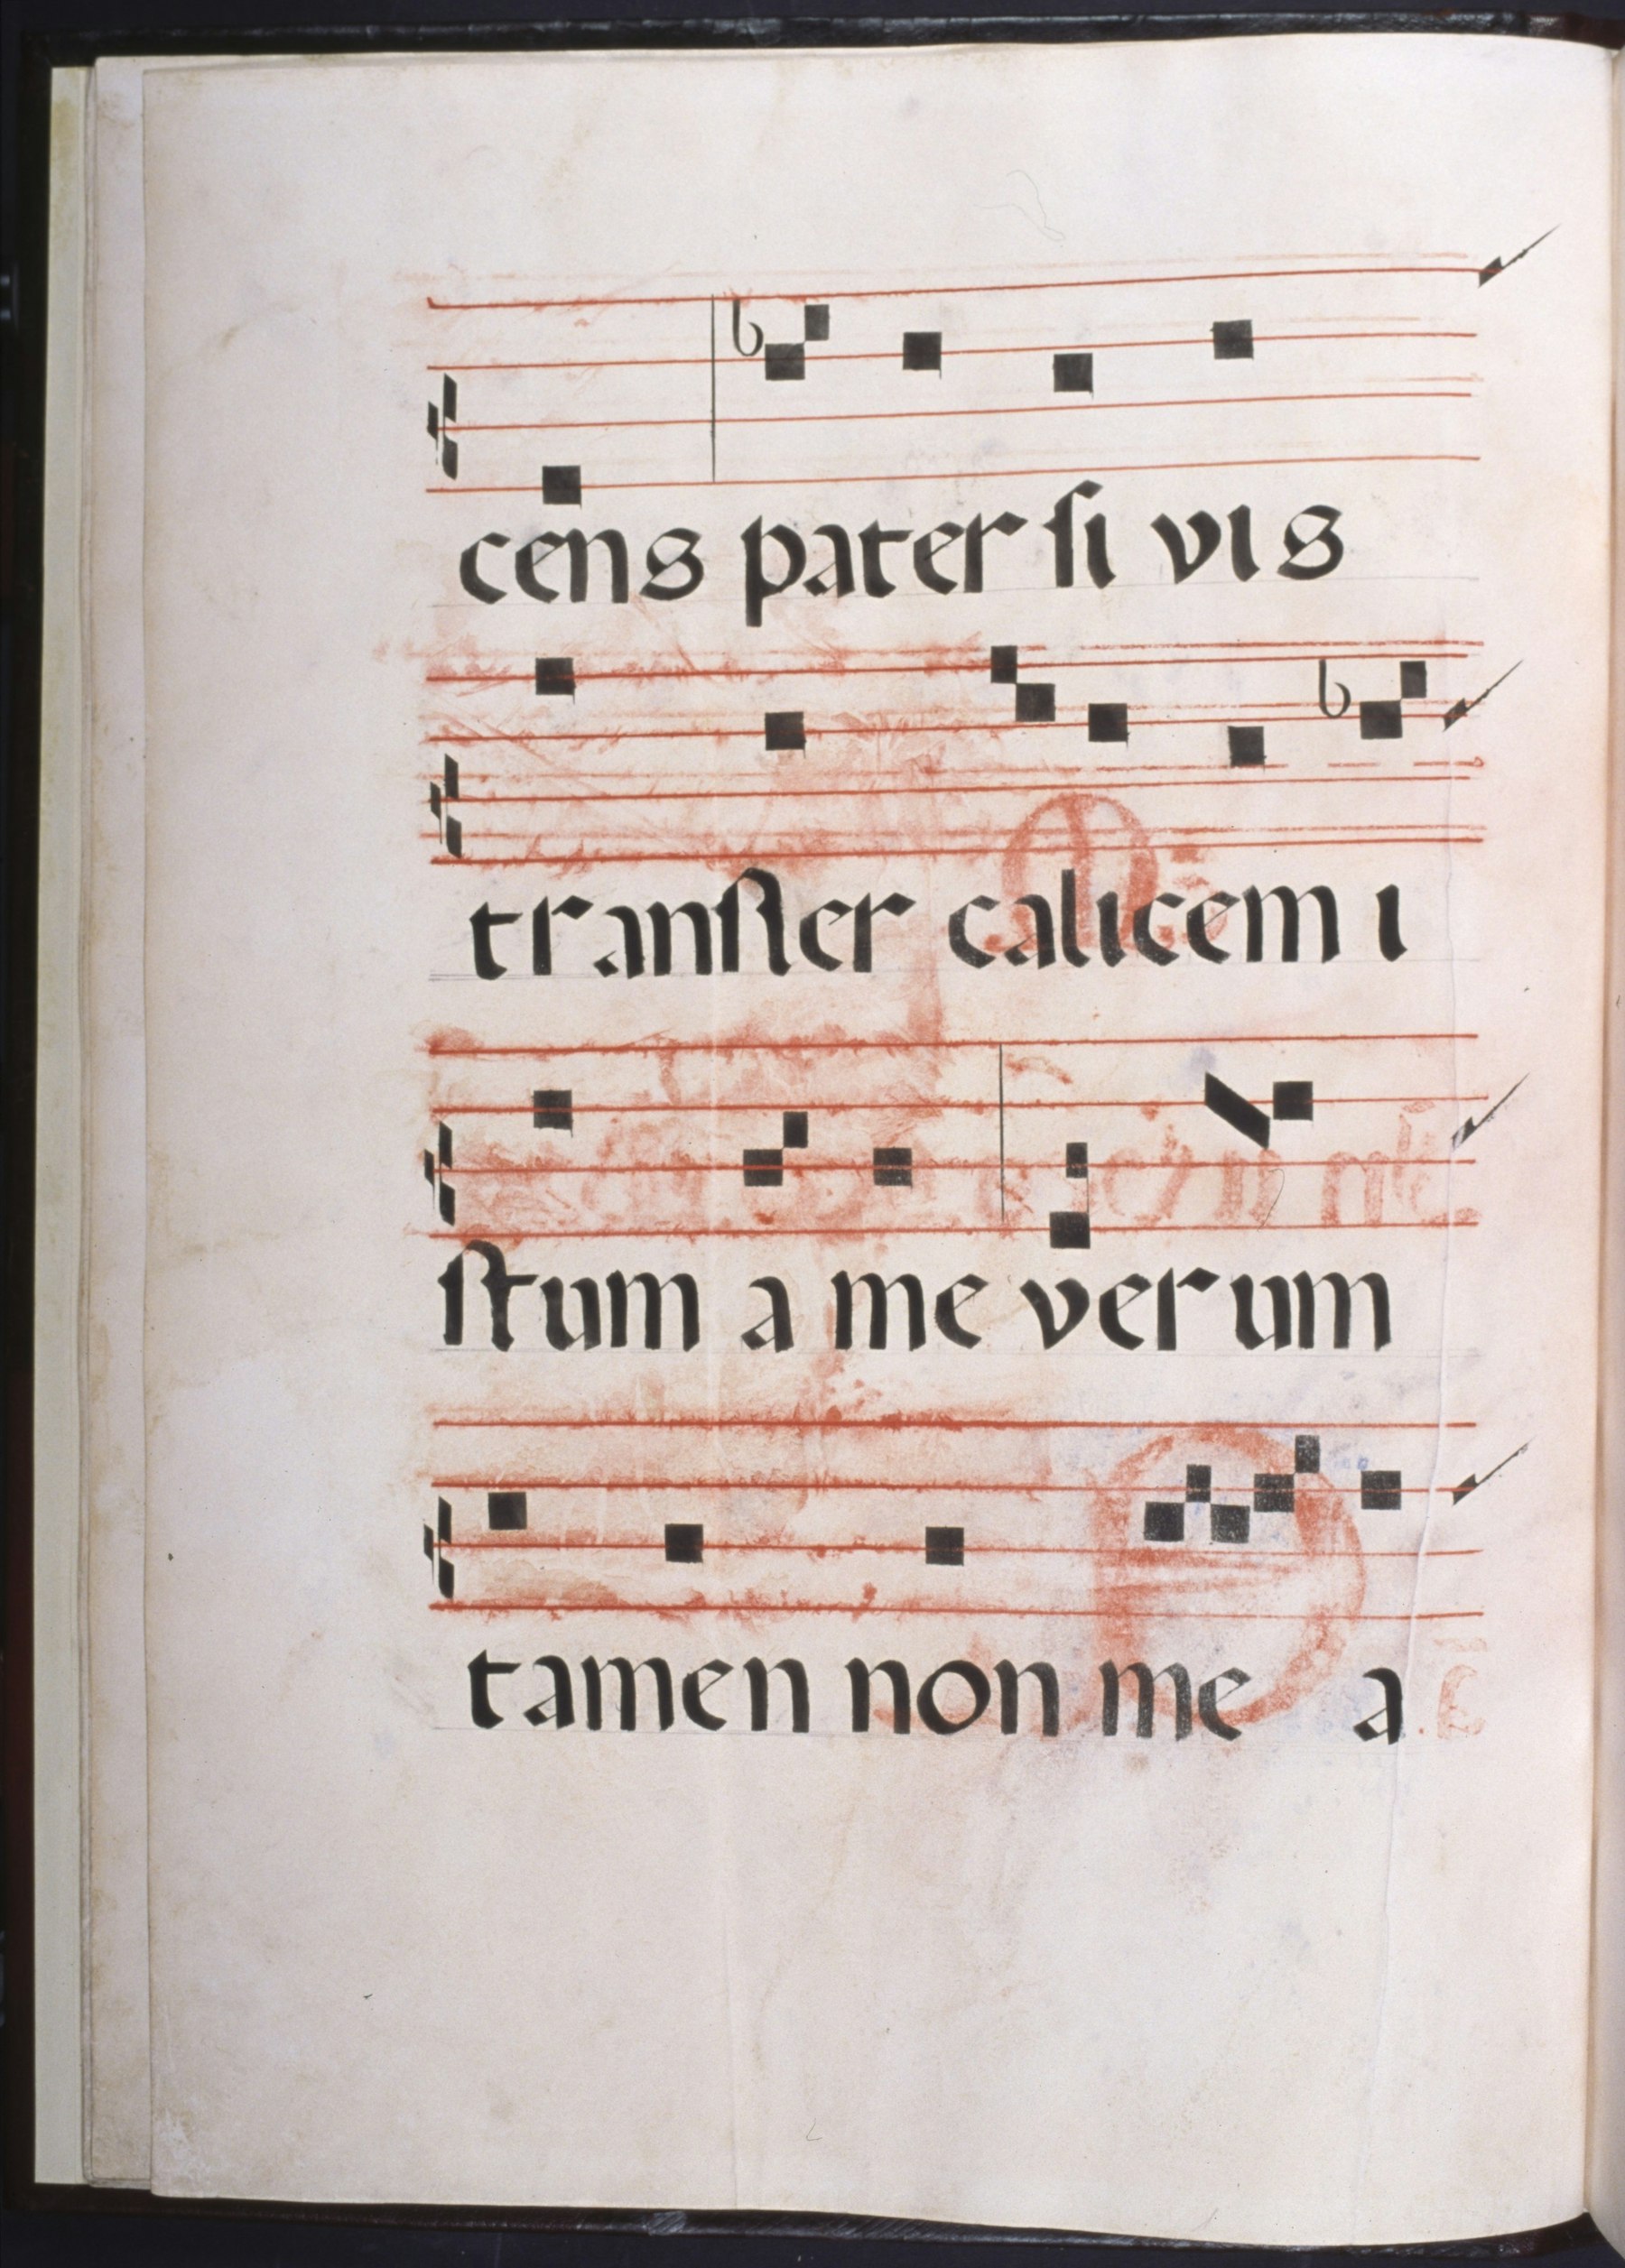 cens pater ſi vis
tranſfer calicem i
ſtum a me verum
tamen non me a